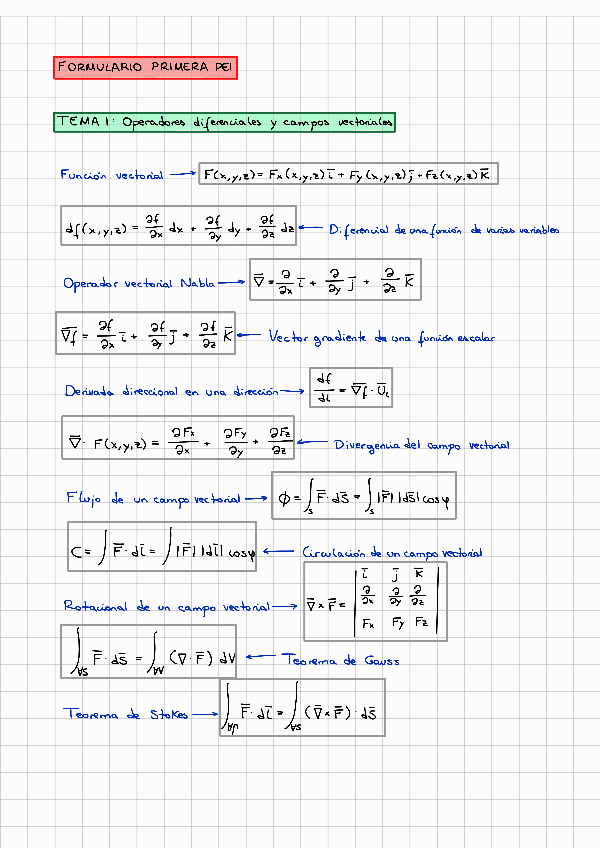 FORMULARIO PRIMERA PEI
TEMA 1: Operadores diferenciales y campos vectoriales
Función vectorial → F(x,y,z) = Fx(x,y,z) i̅ + Fy(x,y,z) j̅ + Fz(x,y,z) K̅
df(x,y,z) = ∂f/∂x dx + ∂f/∂y dy + ∂f/∂z dz ← Diferencial de una función de varias variables
Operador vectorial Nabla → ∇̅ = ∂/∂x i̅ + ∂/∂y j̅ + ∂/∂z K̅
∇̅f = ∂f/∂x i̅ + ∂f/∂y j̅ + ∂f/∂z K̅ ← Vector gradiente de una función escalar
Derivada direccional en una dirección → df/dl = ∇̅f · U̅l
∇̅ · F(x,y,z) = ∂Fx/∂x + ∂Fy/∂y + ∂Fz/∂z ← Divergencia del campo vectorial
Flujo de un campo vectorial → ϕ = ∫s F̅ · ds̅ = ∫s |F̅| |ds̅| cosφ
C = ∫ F̅ · dl̅ = ∫ |F̅| |dl̅| cosφ ← Circulación de un campo vectorial
Rotacional de un campo vectorial → ∇̅ × F̅ = | i̅ j̅ K̅
∂/∂x ∂/∂y ∂/∂z
Fx Fy Fz |
∫∀S F̅ · ds̅ = ∫∀V (∇ · F̅) dV ← Teorema de Gauss
Teorema de Stokes → ∫∀Γ F̅ · dl̅ = ∫∀S (∇̅ × F̅) · ds̅